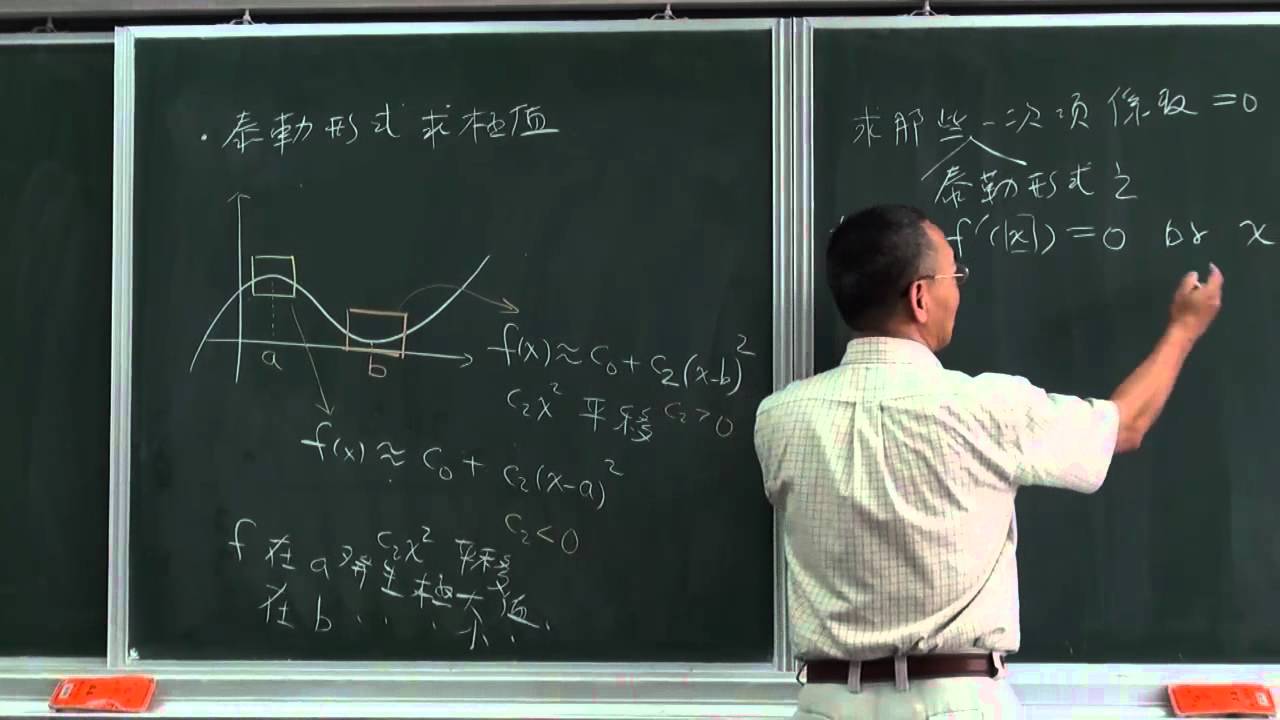 · 泰勒形式求極值
a
b
f(x) ≈ c₀ + c₂(x-b)²
c₂x² 平移 c₂>0
f(x) ≈ c₀ + c₂(x-a)²
c₂<0
c₂x² 平移
f 在 a 發生極大值
在 b · · · 小 · ·
求那些一次項係數=0
泰勒形式之
f'(x)=0 or x